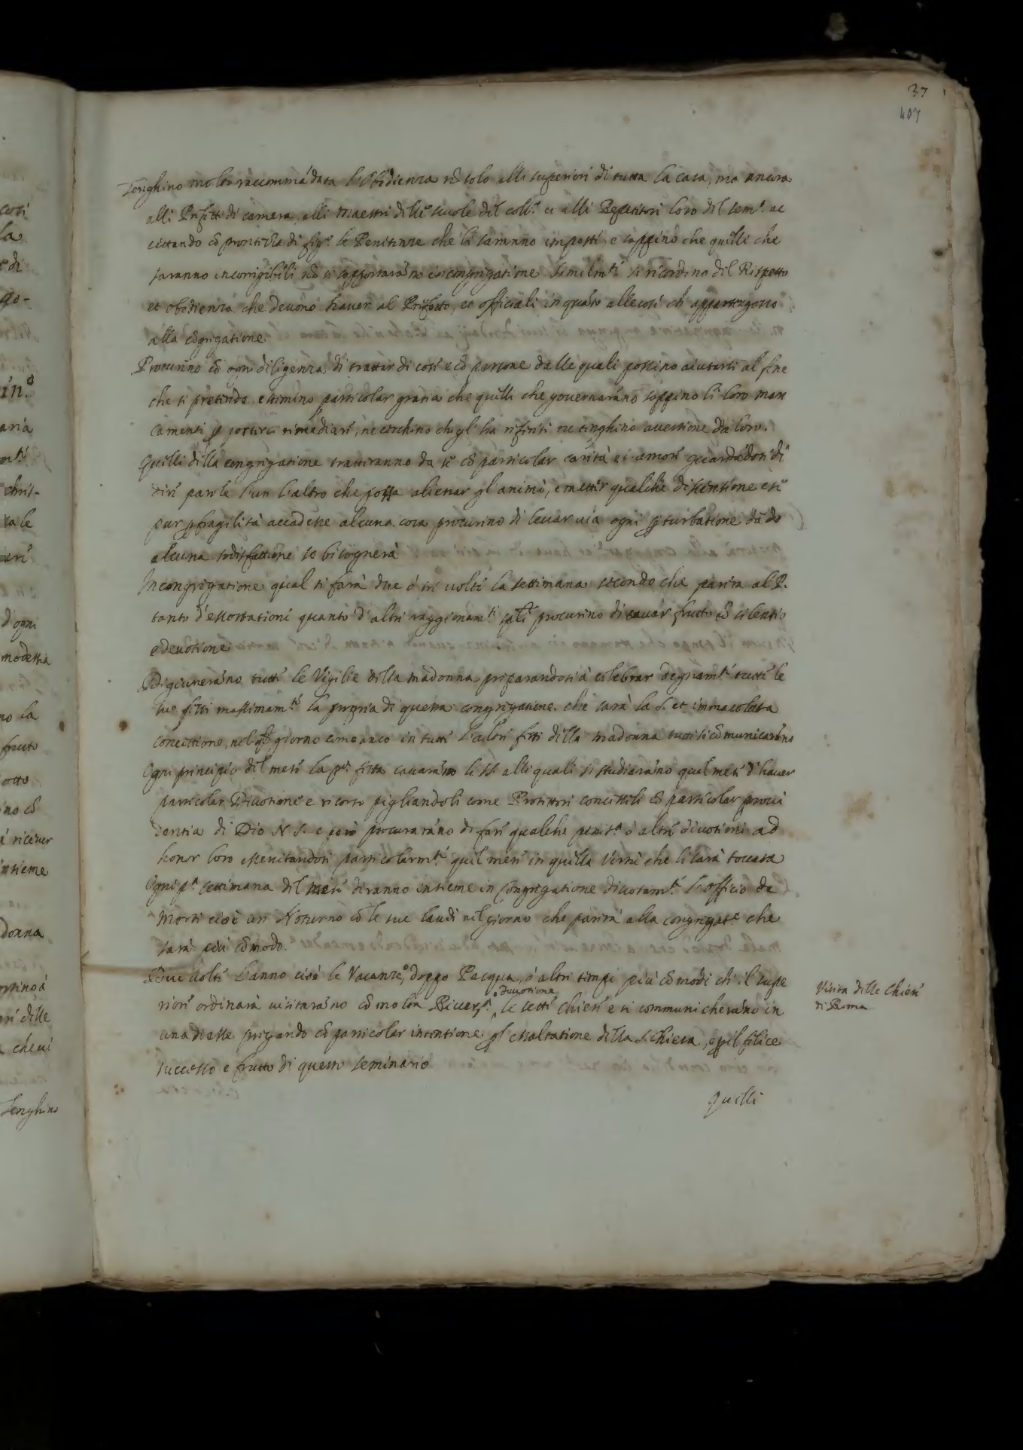 37
407
Tenghino molto raccommãdata l'Obidienza nõ solo alli superiori di tutta la casa, ma ancora
alli Prefetti di camera, alli maestri delle scuole del coll.º et alli Repetitori loro del sem.º ac
cettando cõ prontezza di far le Penitenze che li saranno imposte, e sappino che quelli che
saranno incorrigibili nõ si sopportarãno in congregatione. si ricordino del Rispetto
et obidienza che devono haver al Prefetto, et officiali in quãto alle cose ch' appartengono
alla cõgregatione.
Procurino cõ ogni diligenza di trattar di cose e cõ persone dalle quali possino aiutarsi al fine
che si pretende. e stimino particolar gratia che quelli che governarãno sappino li loro man
camenti p poterci rimediare, ne ne tenghino aversione da loro.
Quelli della congregatione trattaranno da se cõ particolar carità et amore guardãdosi di
dire parole l'un l'altro che possa alienar gl'animi, e metter qualche dissensione e se
pur p fragilità accadesse alcuna cosa procurino di levar via ogni pturbatione dã do
alcuna sodisfattione se bisognerà
In congregatione qual si farà due ò tre volte la settimana secondo che parerà al P.
tanto d'essortationi quanto d'altri raggionam.ti procurino di cavar frutto cõ silentio
e devotione
Digiunerãno tutte le Vigilie della madonna preparandosi à celebrar degnam.te tutte le
sue feste massimam.te la propria di questa congregatione che sarà la S. et immacolata
concettione, nel qual giorno come anco in tutte l'altre feste della madonna tutti si cõmunicarãno
Ogni principio del mese la p.ª festa cavarãno li S.ti alli quali si studiarãno quel mese d'haver
particolar Divotione e ricorso pigliandoli come Protettori concessili cõ particolar provi
dentia di Dio N. S. e però procurarãno di fare qualche penit.ª ò altre divotioni ad
honor loro essercitandosi particolarm.te quel mese in quella Virtù che li sarà toccata
Ogni p.ª settimana del mese diranno insieme in Congregatione divotam.te l'officio de
Morti cioè un Notturno cõ le sue laudi nel giorno che parerà alla congregat.e che
sarà più cõmodo.
Due volte l'anno cioè le Vacanze, ò doppo Pacqua, ò altri tempi più cõmodi ch' il supe
riore ordinarà visitarãno cõ molta devotione le sette chiese e si communicherãno in
una di esse pregando cõ particolar intentione p l'essaltatione della S. Chiesa, e p il felice
successo e frutto di questo seminario
Visita delle Chiese
di Roma
Quelli